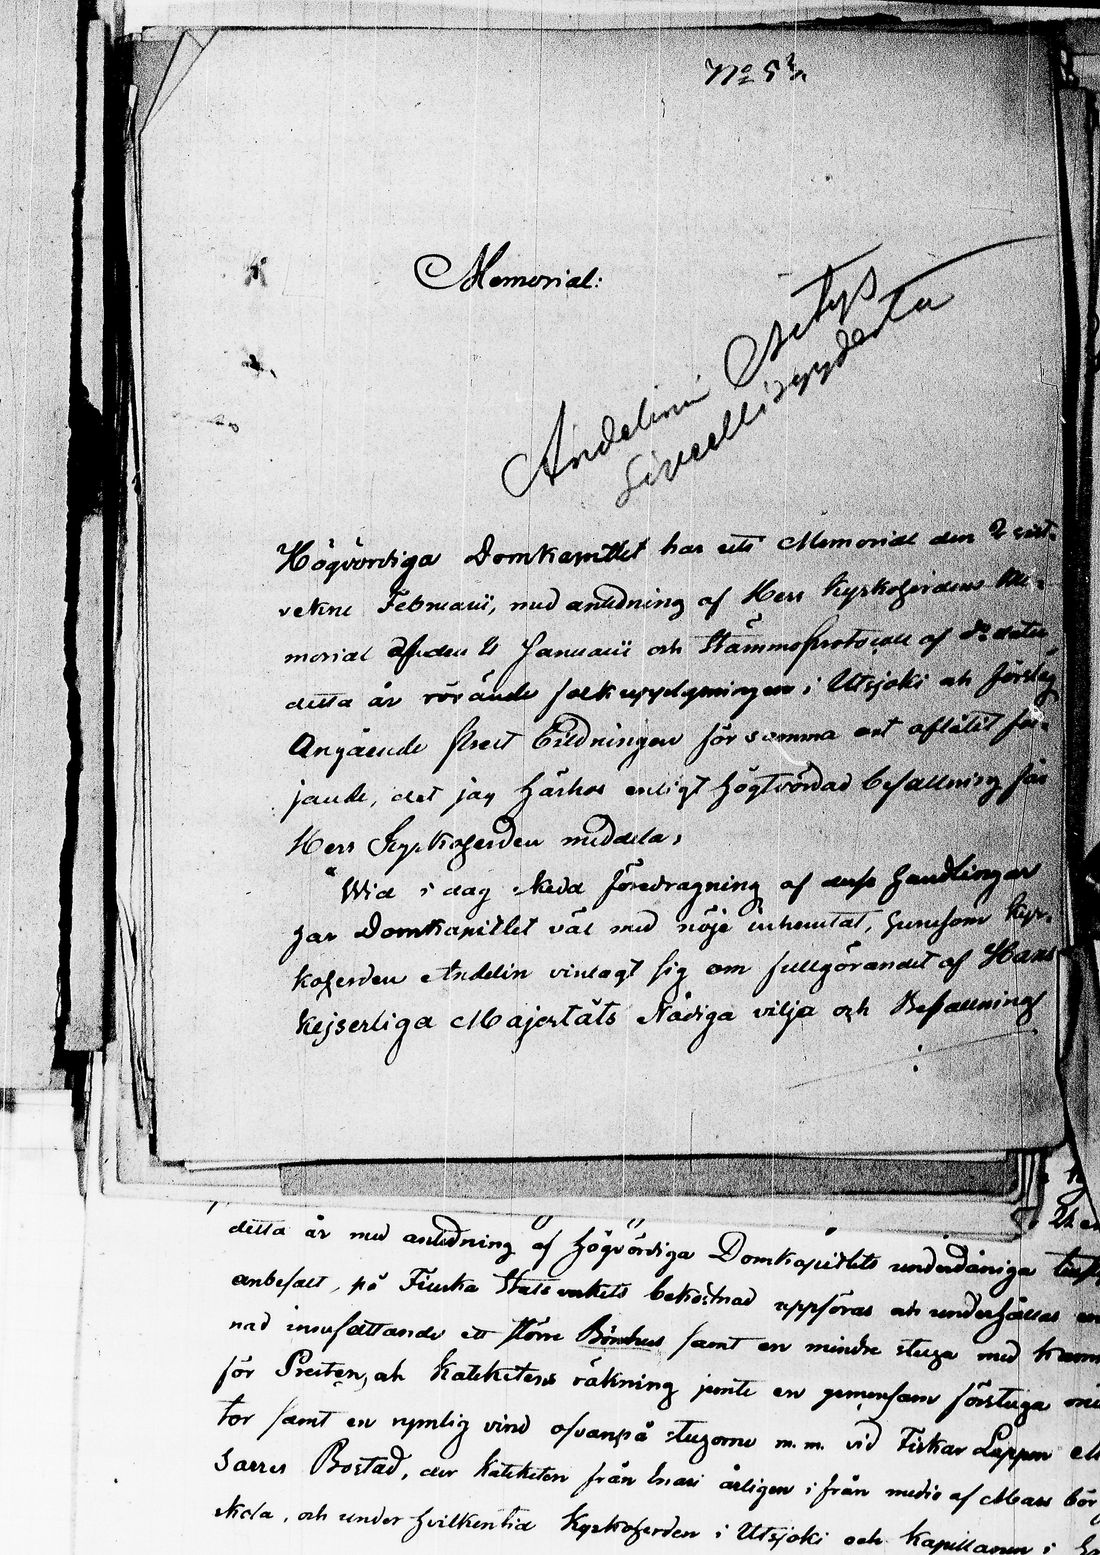 No 53
Memorial:
Andelini
Siveellisyydestä
Högvördiga Domkapitlet har uti Memorial den 2 sist-
vekne Februarii, med anledning af Herr Kyrkoherdens Me-
morial af den 21 Januarii och Stämmoprotocoll af do dato
detta år rörande folkupplysningen i Utsjoki och förslag
Angående Prest Bildningen för samma ort aflåtit föl-
jande, det jag härhos enligt högtvördad befallning får
Herr Kyrkoherden meddela;
"Wid i dag skedd föredragning af dessa handlingar
har Domkapitlet väl med nöje inhemtat, hurusom Kyr-
koherden Andelin vinlagt sig om fullgörandet af Hans
Kejserliga Majestäts Nådiga vilja och Befallning
detta år med anledning af Högvördiga Domkapitlets underdåniga
anbefalt, på Finska Statsverkets bekostnad uppföras och underhållas en
nad innefattande ett större Bönehus samt en mindre stuga med kam
för Presten, och Katekétens räkning jemte en gemensam förstuga
tor samt en rymlig vind ofvanpå stugorne m.m. vid Fiskar Lappen
Sarres Bostad, der Kateketen från Inari årligen ifrån medio af Mars bör
skola, och under hvilken tid Kyrkoherden i Utsjoki och Kapellanen i